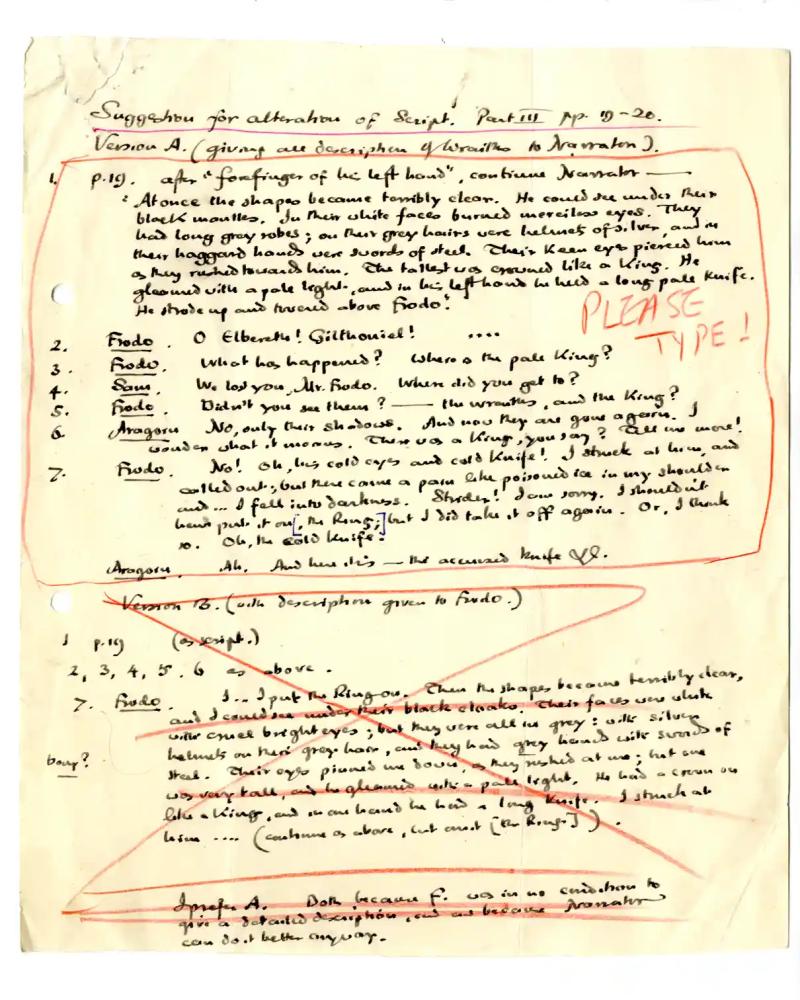 Suggestion for alteration of Script. Part III pp. 19-20.
Version A. (giving all description of Wraiths to Narrator).
1. p.19. after "forefinger of his left hand", continue Narrator —
"At once the shapes became terribly clear. He could see under their
black mantles. In their white faces burned merciless eyes. They
had long grey robes; on their grey hairs were helmets of silver, and in
their haggard hands were swords of steel. Their keen eyes pierced him
as they rushed towards him. The tallest was crowned like a King. He
gleamed with a pale light, and in his left hand he held a long pale knife.
He strode up and towered above Frodo."
PLEASE
TYPE!
2. Frodo. O Elbereth! Gilthoniel! ....
3. Frodo. What has happened? Where is the pale King?
4. Sam. We lost you, Mr. Frodo. Where did you get to?
5. Frodo. Didn't you see them? — the wraiths, and the King?
6. Aragorn No, only their shadows. And now they are gone again. I
wonder what it means. There was a King, you say? Tell me more!
7. Frodo. No! Oh, his cold eyes and cold knife! I struck at him, and
called out; but there came a pain like poisoned ice in my shoulder
and... I fell into darkness. Strider! I am sorry. I shouldn't
have put it on[, the Ring;] but I did take it off again. Or, I think
so. Oh, the cold knife!
Aragorn. Ah. And here it is — the accursed knife
Version B. (with description given to Frodo.)
1 p.19 (as script.)
2, 3, 4, 5. 6 as above.
7. Frodo. I... I put the Ring on. Then the shapes became terribly clear,
and I could see under their black cloaks. Their faces were white
with cruel bright eyes; but they were all in grey: with silver
helmets on their grey hair, and they had grey hands with swords of
steel. Their eyes pinned me down, as they rushed at me; but one
was very tall, and he gleamed with a pale light. He had a crown on
like a King, and in one hand he had a long knife. I struck at
him .... (continue as above, but omit [the Ring]).
I prefer A. Both because F. was in no condition to
give a detailed description, and because Narrator
can do it better anyway.